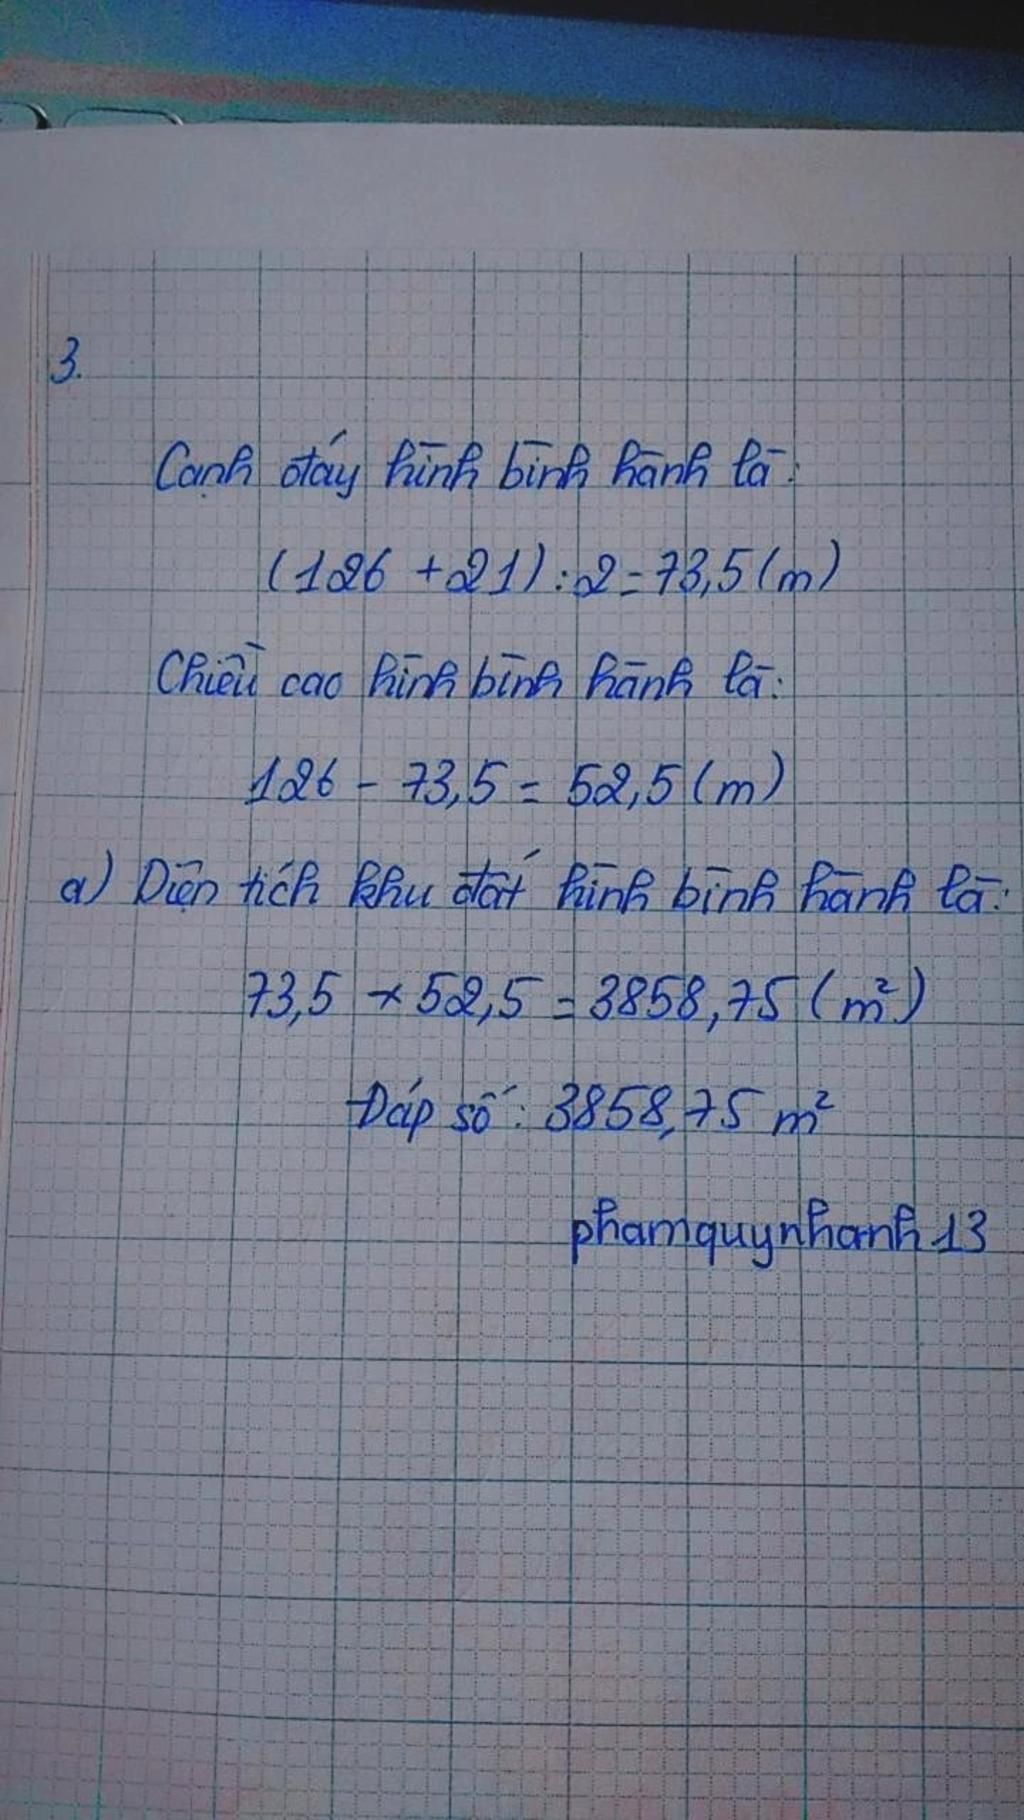 3.
Cạnh đáy hình bình hành là:
(126 + 21) : 2 = 73,5 (m)
Chiều cao hình bình hành là:
126 - 73,5 = 52,5 (m)
a) Diện tích khu đất hình bình hành là:
73,5 × 52,5 = 3858,75 (m²)
Đáp số: 3858,75 m²
phamquynhanh13